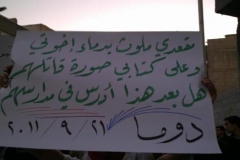 مقعدي ملوث بدماء إخوتي
وعلى كتابي صورة قاتلهم
هل بعد هذا أدرس في مدارسهم
دوما
٢١ / ٩ / ٢٠١١